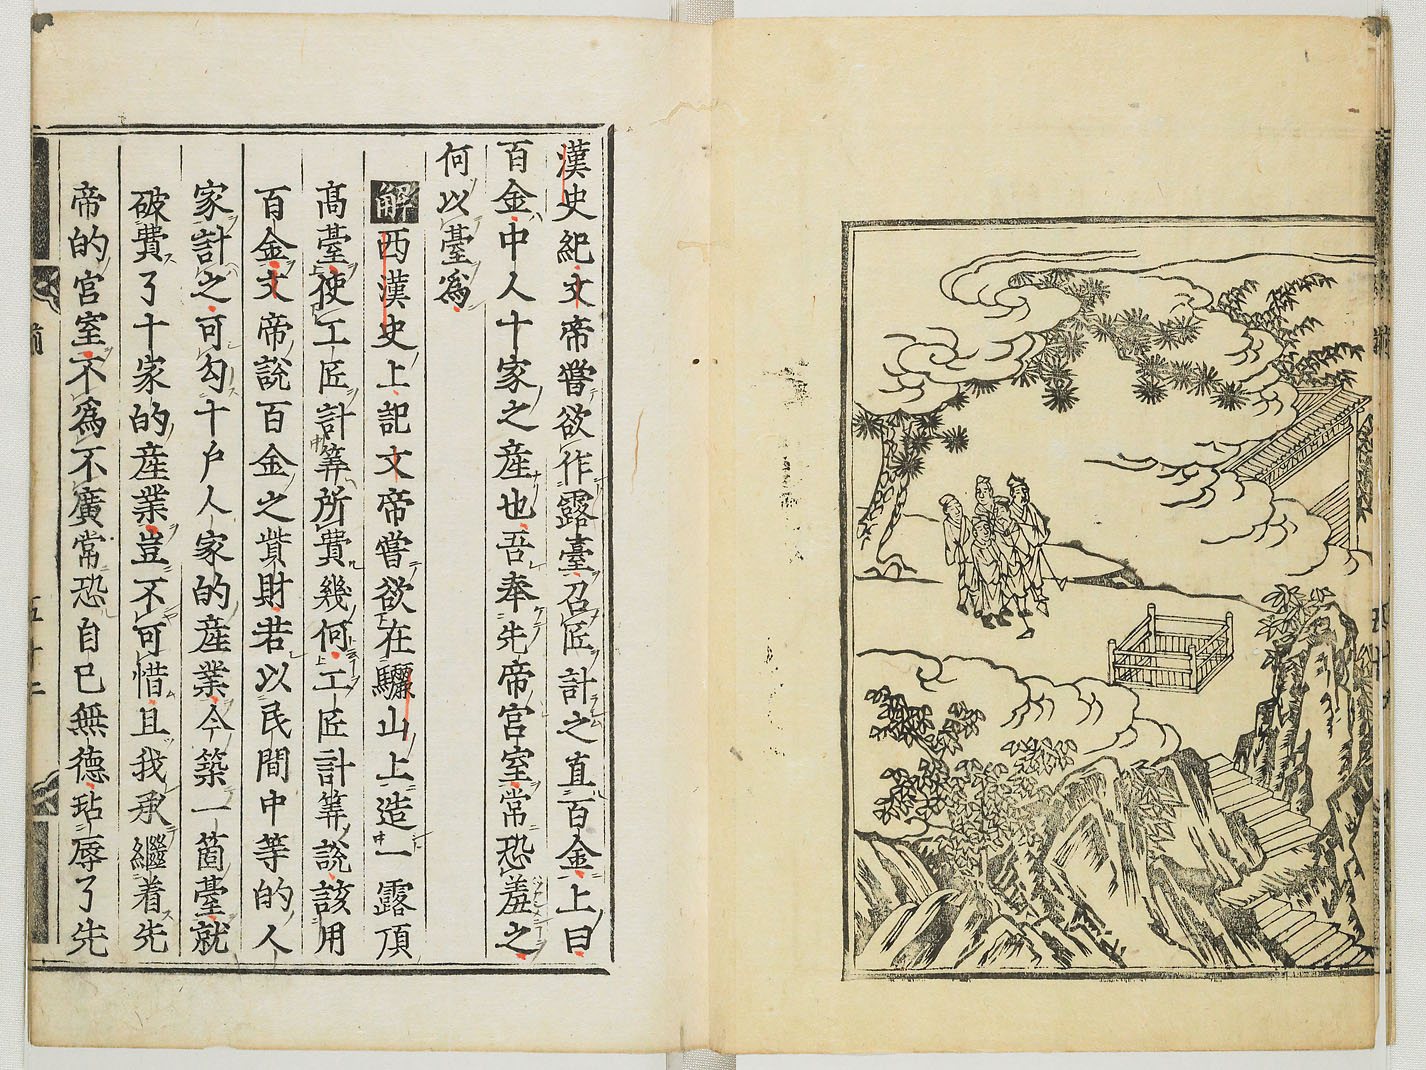 漢史紀文帝嘗欲作露臺召匠計之直百金上曰
百金中人十家之產也吾奉先帝宮室常恐羞之
何以臺爲
解西漢史上記文帝嘗欲在驪山上造一露頂
高臺使工匠計筭所費幾何工匠計筭說該用
百金文帝說百金之貲財若以民間中等的人
家計之可勾十戶人家的產業今築一箇臺就
破費了十家的產業豈不可惜且我承繼着先
帝的宮室不爲不廣常恐自己無德玷辱了先
五十二